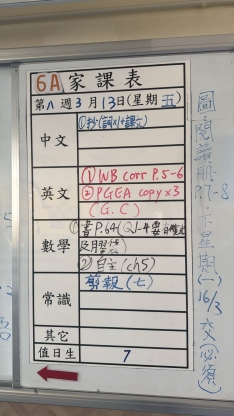 6A 家課表
第八週3月13日(星期五)
中文
①抄(詞x1+課文)
英文
① WB corr P.5-6
② PGEA copy x3
(G.C)
數學
①書P.64(Q1-4要
2)自主(ch5)
常識
剪報(七)
其它
值日生
7
圖閱讀冊P.7-8下星期(一)16/3交(必須)